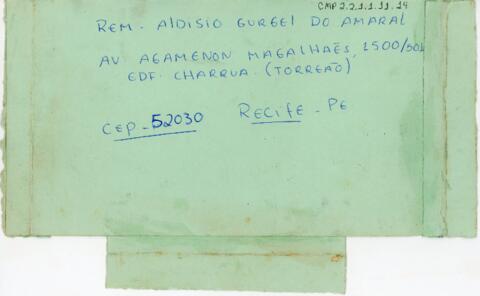 CMP 2.2.1.1.11.14
REM. AlOISIO GURGEL DO AMARAL
AV. AGAMENON MAGALHÃES, 1500/501
EDF. CHARRUA. (TORREÃO)
CEP - 52030 RECIFE - PE